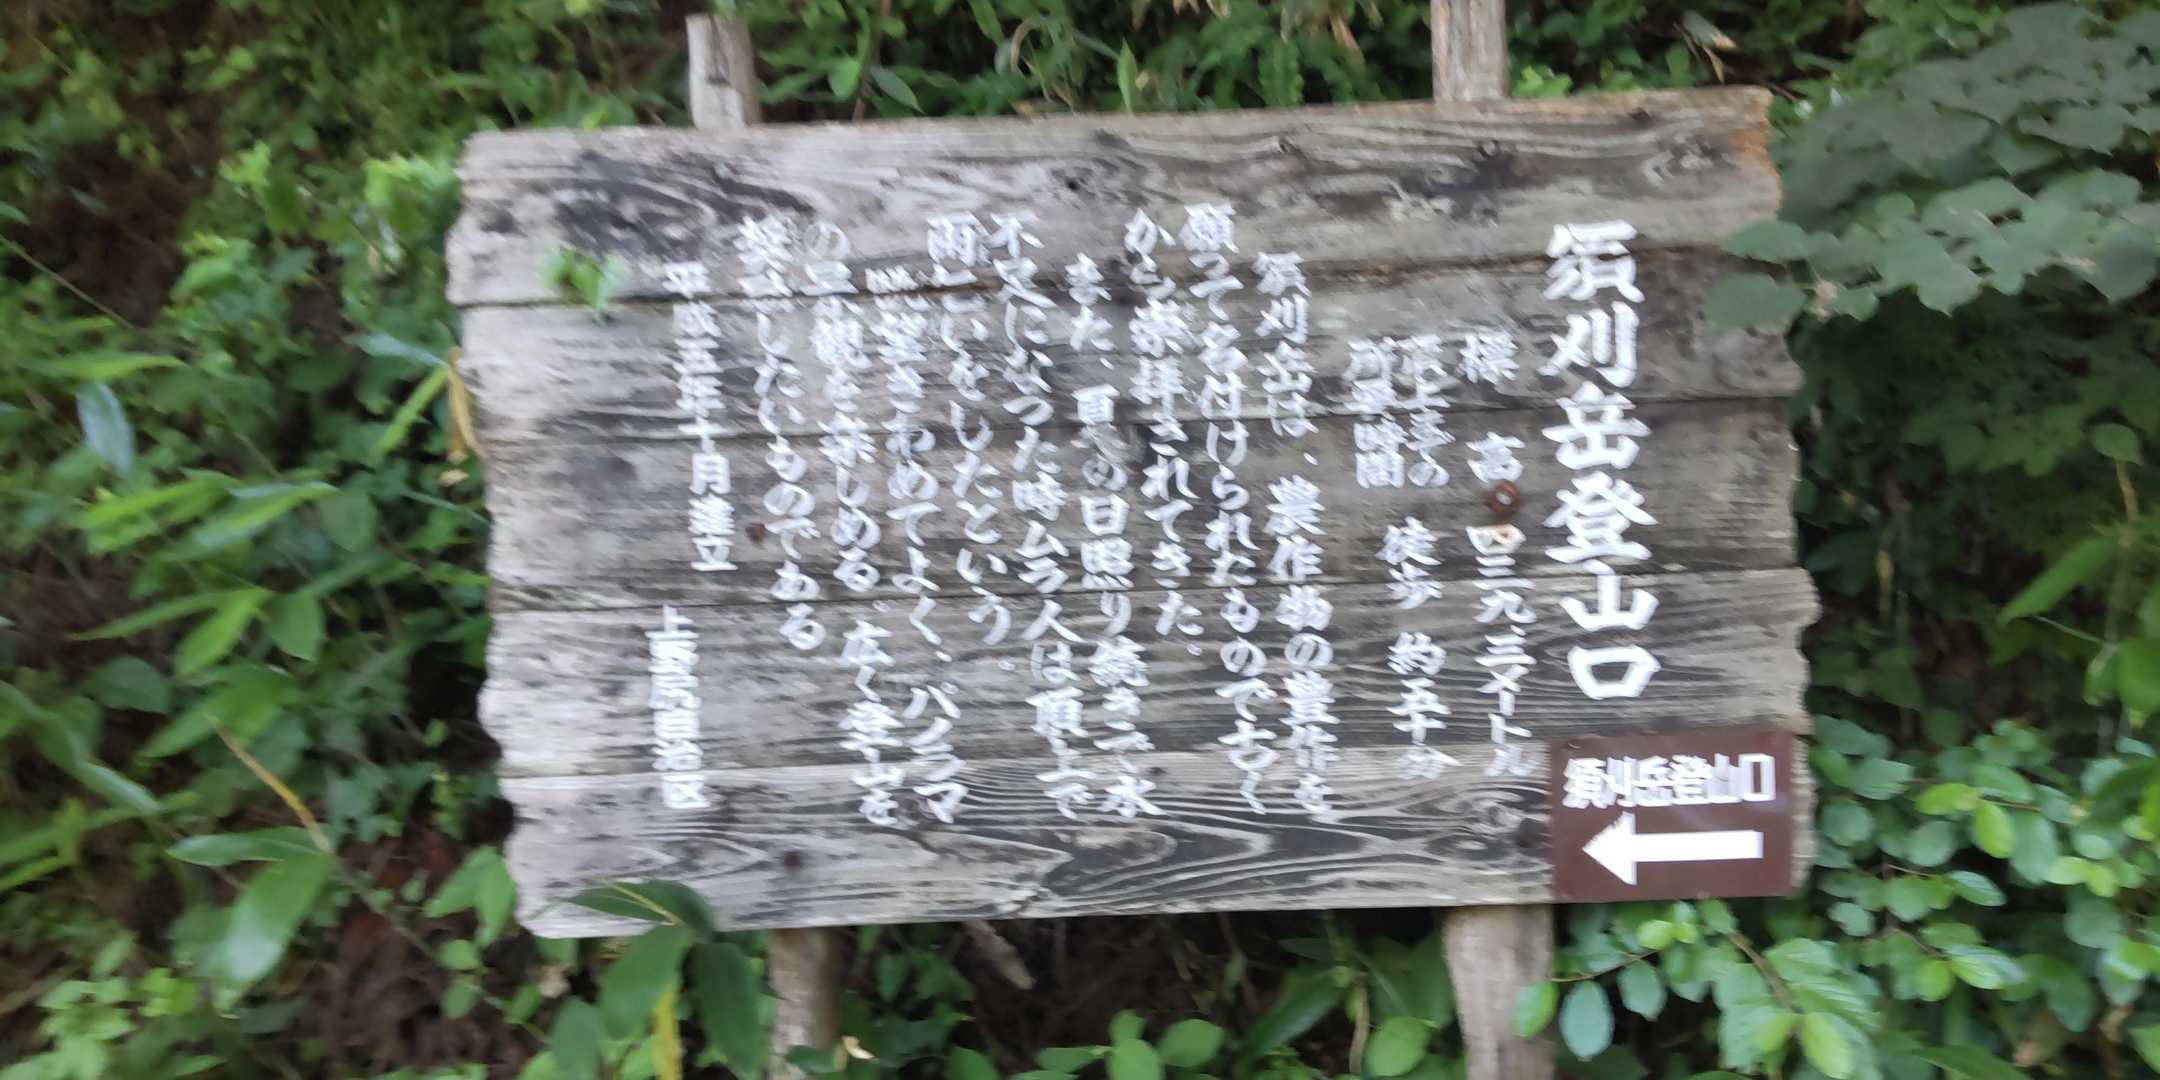 須刈岳登山口
標 高 四三九・三メートル
頂上までの
所要時間 徒歩 約五十分
須刈岳は、農作物の豊作を
願って名付けられたもので古く
から崇拝されてきた。
また、夏の日照り続きで水
不足になった時ムラ人は頂上で
雨ごいをしたという。
眺望きわめてよく、パノラマ
の景観を楽しめる。広く登山を
奨励したいものである
平成五年十月建立
上野尻自治区
須刈岳登山口